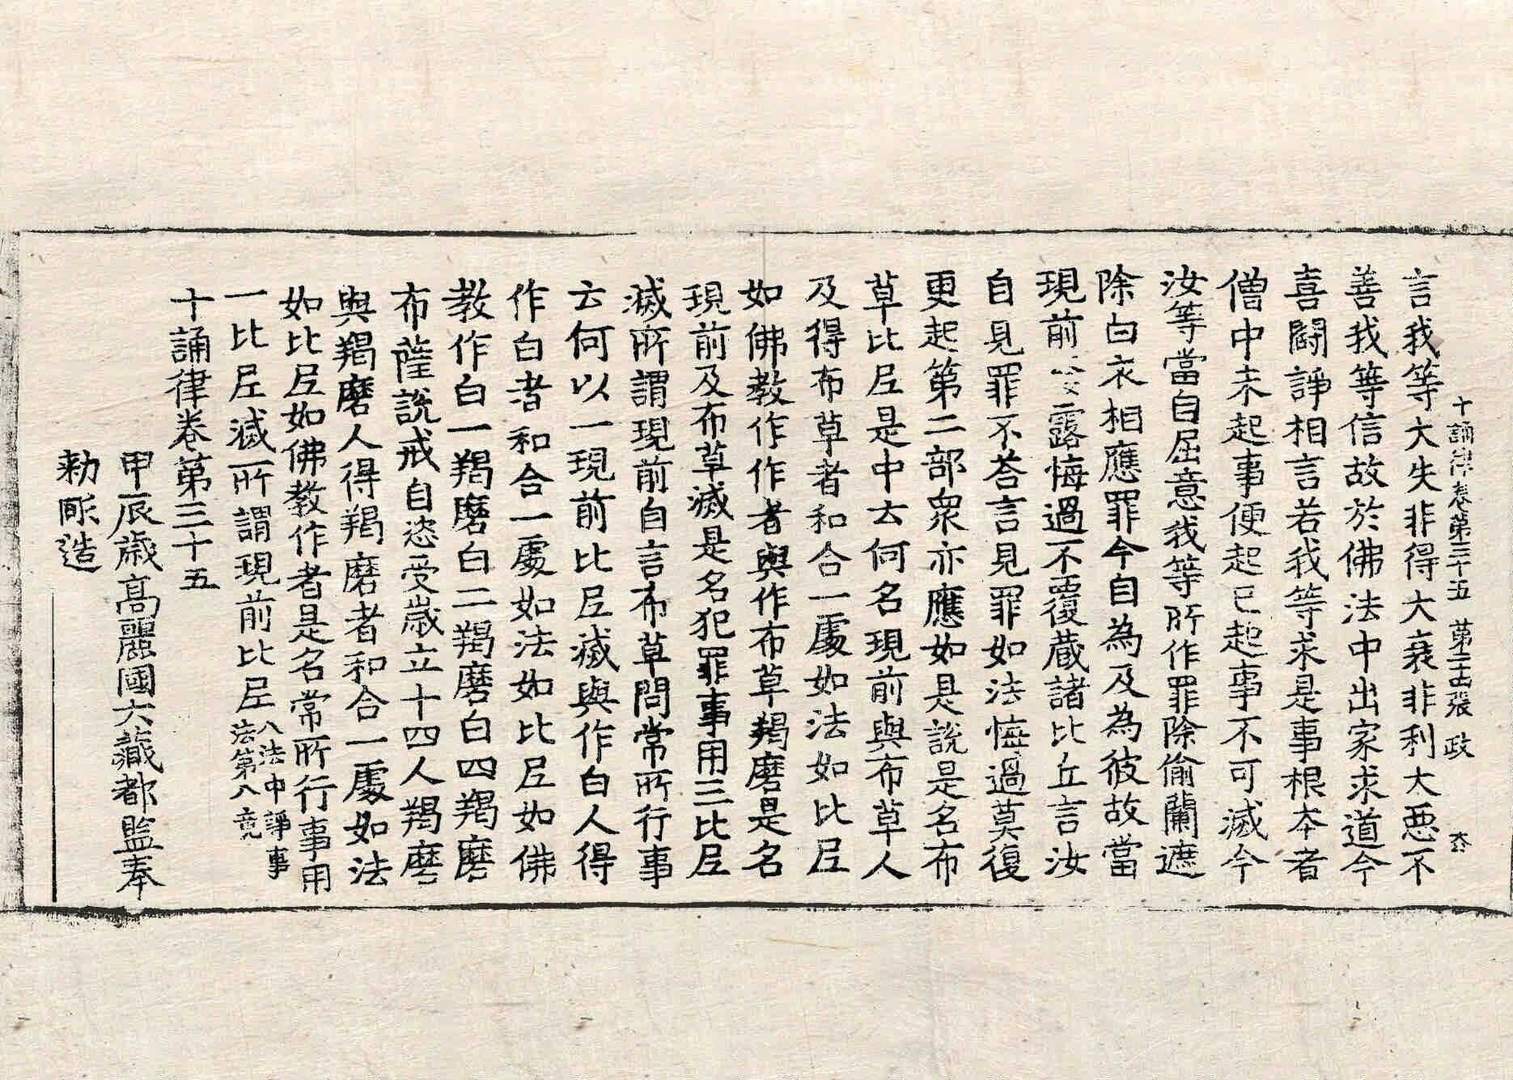 十誦律卷第三十五 第二十六張 政
言我等大失非得大衰非利大惡不
善我等信故於佛法中出家求道今
喜鬪諍相言若我等求是事根本者
僧中未起事便起已起事不可滅今
汝等當自屈意我等所作罪除偷蘭遮
除白衣相應罪今自為及為彼故當
現前發露悔過不覆蔵諸比丘言汝
自見罪不荅言見罪如法悔過莫復
更起第二部衆亦應如是說是名布
草比尼是中云何名現前與布草人
及得布草者和合一處如法如比尼
如佛教作作者與作布草羯磨是名
現前及布草滅是名犯罪事用三比尼
滅所謂現前自言布草問常所行事
云何以一現前比尼滅與作白人得
作白者和合一處如法如比尼如佛
教作白一羯磨白二羯磨白四羯磨
布薩說戒自恣受歲立十四人羯磨
與羯磨人得羯磨者和合一處如法
如比尼如佛教作者是名常所行事用
一比尼滅所謂現前比尼 八法中諍事
法第八竟
十誦律卷第三十五
甲辰歲高麗國大藏都監奉
勑雕造